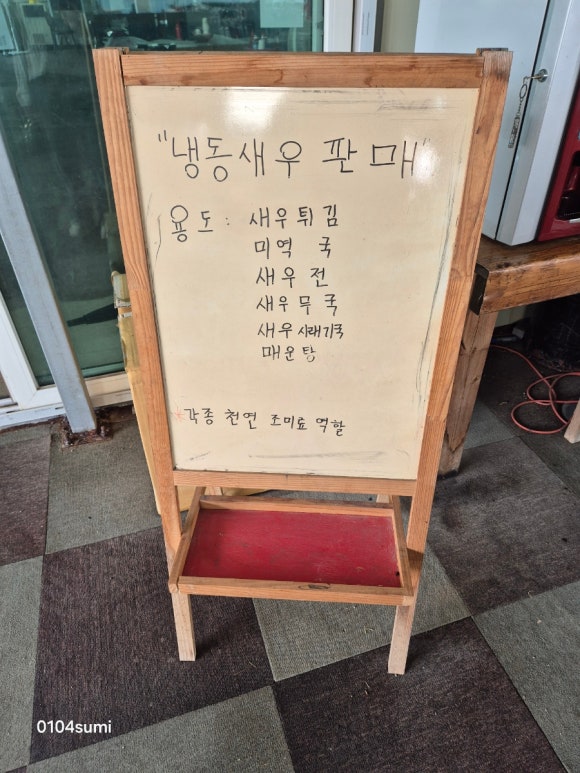 "냉동새우 판매"
용도: 새우튀김
미역 국
새우 전
새우 무 국
새우 시래기국
매운탕
각종 천연 조미료 역할
0104sumi